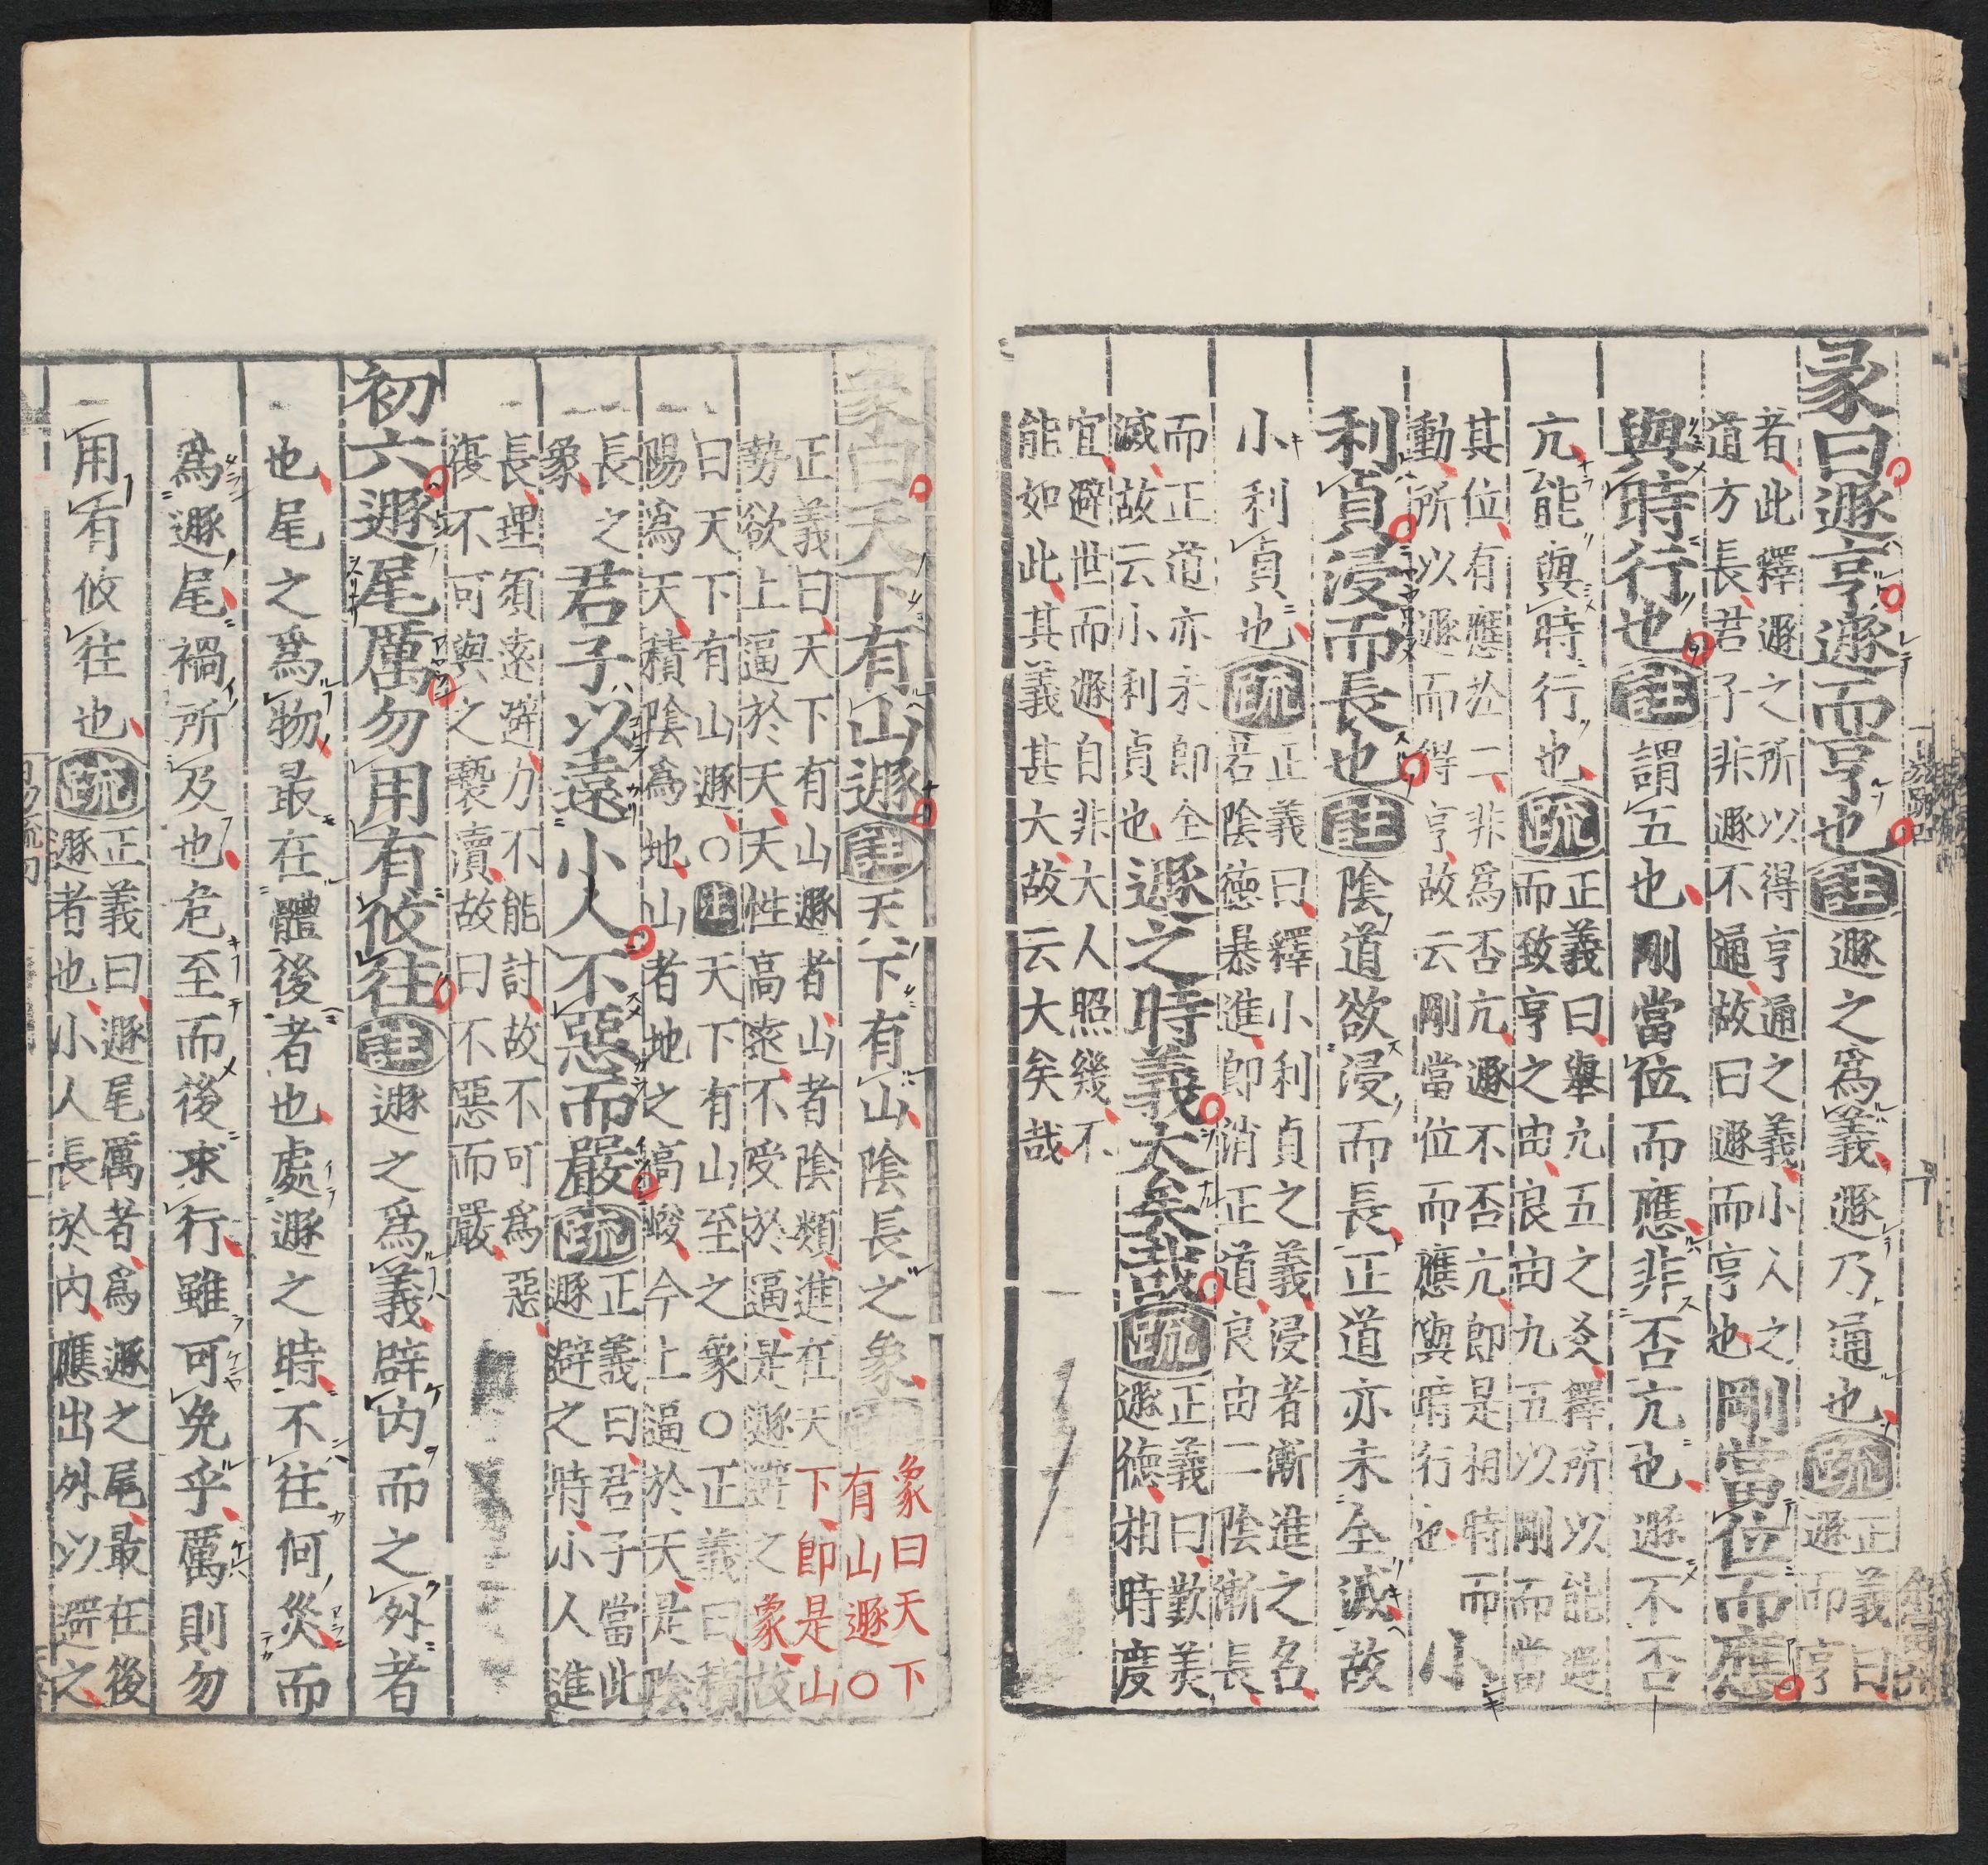 彖曰遯亨遯而亨也註遯之爲義遯乃通也疏正義曰
遯而亨
者此釋遯之所以得亨通之義小人之
道方長君子非遯不通故曰遯而亨也剛當位而應
與時行也註謂五也剛當位而應非否亢也遯不否
亢能與時行也疏正義曰舉九五之爻釋所以能遯
而致亨之由良由九五以剛而當
其位有應於二非爲否亢遯不否亢即是相時而
動所以遯而得亨故云剛當位而應與時行也小
利貞浸而長也註陰道欲浸而長正道亦未全滅故
小利貞也疏正義曰釋小利貞之義浸者漸進之名
若陰德暴進即消正道良由二陰漸長
而正道亦未即全
滅故云小利貞也遯之時義大矣哉疏正義曰歎美
遯德相時度
宜避世而遯自非大人照幾不
能如此其義甚大故云大矣哉
象曰天下有山遯註天下有山陰長之象疏象曰天下
有山遯○
正義曰天下有山遯者山者陰類進在天下即是山
勢欲上逼於天天性高遠不受於逼是遯避之象故
曰天下有山遯○註天下有山至之象○正義曰積
陽爲天積陰爲地山者地之高峻今上逼於天是陰
長之
象君子以遠小人不惡而嚴疏正義曰君子當此
遯避之時小人進
長理須遠避力不能討故不可爲惡
復不可與之褻瀆故曰不惡而嚴
初六遯尾厲勿用有攸往註遯之爲義辟内而之外者
也尾之爲物最在體後者也處遯之時不往何災而
爲遯尾禍所及也危至而後求行雖可免乎厲則勿
用有攸往也疏正義曰遯尾厲者爲遯之尾最在後
遯者也小人長於内應出外以避之